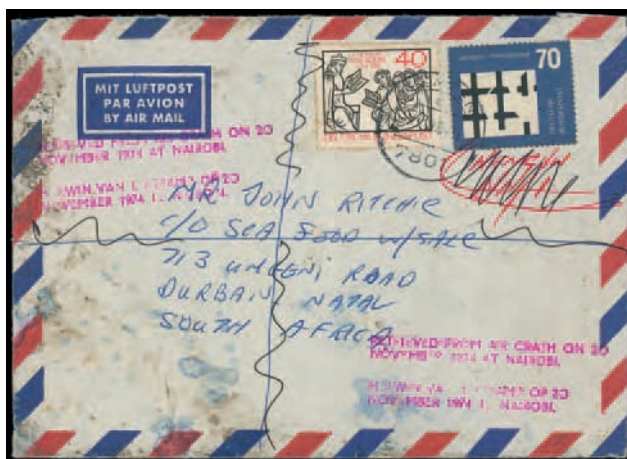 40
70
MIT LUFTPOST
PAR AVION
BY AIR MAIL
FROM AIR CRASH ON 20
NOVEMBER 1974 AT NAIROBI.
HERWIN VAN OP 20
NOVEMBER 1974 NAIROBI.
MR JOHN RITCHIE
C/O SEA FOOD W/SALE
713 UMGENI ROAD
DURBAN, NATAL
SOUTH AFRICA
RETRIEVED FROM AIR CRASH ON 20
NOVEMBER 1974 AT NAIROBI.
HERWIN VAN OP 20
NOVEMBER 1974 NAIROBI.